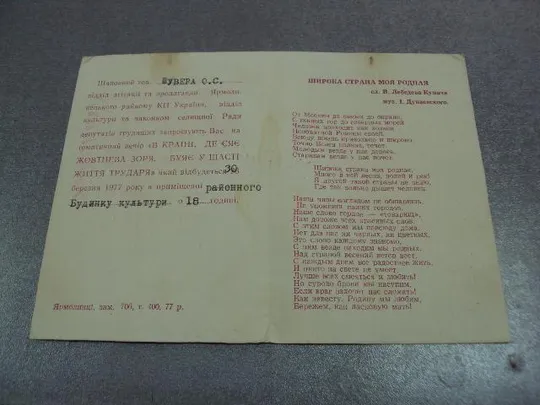 Шановний тов. ШУВЕРА О.С.
відділ агітації та пропаганди Ярмоли-
нецького райкому КП України, відділ
культури та виконком селищної Ради
депутатів трудящих запрошують Вас на
урочистий вечір «В КРАЇНІ, ДЕ СЯЄ
ЖОВТНЕВА ЗОРЯ, ВУЄ У ЩАСТІ
ЖИТТЯ ТРУДАРЯ» який відбудеться 30
березня 1977 року в приміщенні районного
Будинку культури о 18 годині.
Ярмолинці, зам. 706, т. 400, 77 р.
ШИРОКА СТРАНА МОЯ РОДНАЯ
сл. В. Лебедєва-Кумача
муз. І. Дунаєвського
От Москвы до самых до окраин,
С южных гор до северных морей
Человек проходит как хозяин
Необъятной Родины своей.
Всюду жизнь привольно и широко
Точно Волга полная, течет.
Молодым везде у нас дорога,
Старикам везде у нас почет.
Широка страна моя родная,
Много в ней лесов, полей и рек!
Я другой такой страны не знаю,
Где так вольно дышит человек.
Наши нивы взглядом не обшаришь,
Не упомнишь наших городов,
Наше слово гордое — «товарищ»,
Нам дороже всех красивых слов.
С этим словом мы повсюду дома,
Нет для нас ни черных, ни цветных,
Это слово каждому знакомо,
С ним везде находим мы родных.
Над страной весенний ветер веет,
С каждым днем все радостнее жить.
И никто на свете не умеет
Лучше всех смеяться и любить!
Но сурово брови мы насупим,
Если враг захочет нас сломать!
Как невесту, Родину мы любим,
Бережем, как ласковую мать!